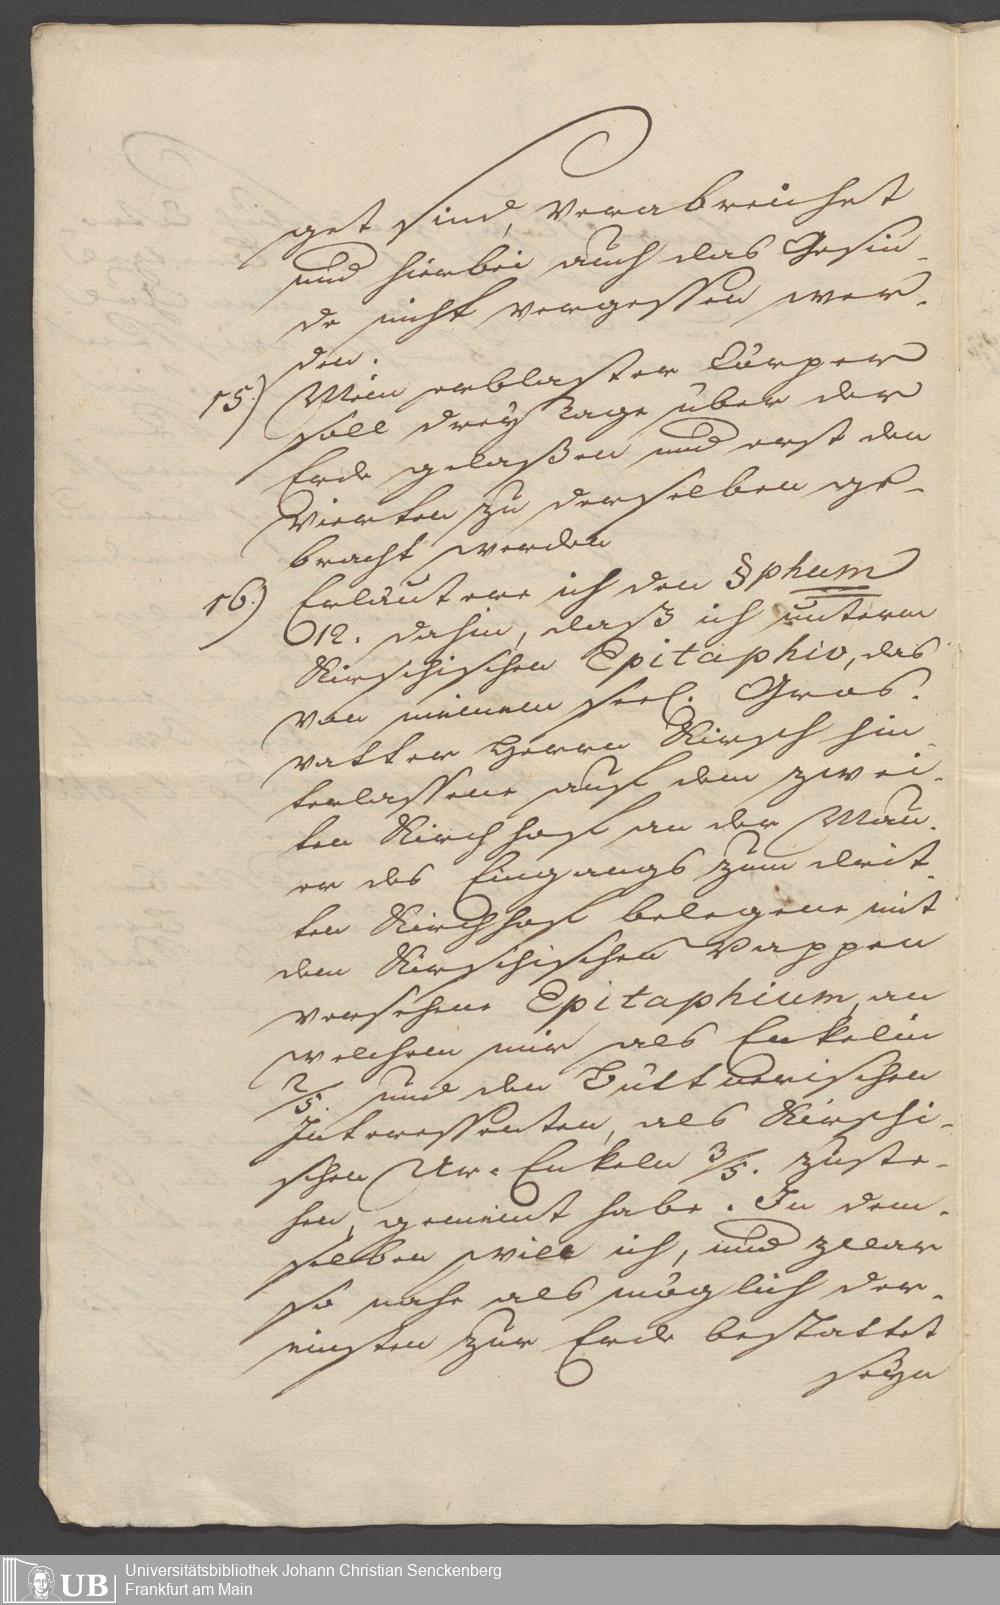 get sind, verabreichet
und hierbei auch das Gesin-
de nicht vergessen wer-
den.
15.) Mein erblaster Cörper
soll drey Tage über der
Erde gelaßen und erst den
Vierten zu derselben ge-
bracht werden
16.) Erläutere ich den §phum
12. dahin, daß ich unterm
Kirschischen Epitaphio, das
von meinem seel. Gros-
vatter Herrn Kirsch hin-
terlassene auf dem zwei-
ten Kirchhoff an der Mau-
er des Eingangs zum drit-
ten Kirchhoff belegene mit
dem Kirschischen Wappen
versehene Epitaphium, an
welchem mir als Enkelin
2/5. und den Büttnerischen
Interessenten, als Kirschi-
schen Ur-Enkeln 3/5. zuste-
hen, gemeint habe. In dem-
selben will ich, und zwar
so nahe als möglich der-
einsten zur Erde bestattet
seyn
Universitätsbibliothek Johann Christian Senckenberg
Frankfurt am Main
UB